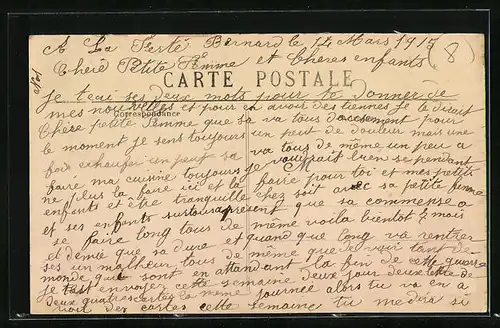 A La Ferté Bernard le 14 Mars 1915 (8)
No 1
Cheré Petite Femme et Cheres enfants
CARTE POSTALE
Je tecri ses deux mots pour te donner de
mes nouvelles et pour en avoir des tiennes je le dirait
Correspondance
Chère petite femme que sa va tous doucement pour
le moment je sens toujours un peut de douleur mais une
fois echaufer un peut sa va tous de même un peu a
faire ma cuisine toujours je voudrait bien se pendant
ne plus la faire ici et la faire pour toi et mes petits
enfants et être tranquille chez soit avec sa petite femme
et ses enfants surtous apresent que sa commense a
se faire long tous de même voila bientot 7 mois
et demie que sa dure et quand que long va rentrer
ses un malheur tous de même que de voir tant de
monde que sont en attendant la fin de cette guerre
je tast envoyer cette semaine deux jour deux lettre de
deux quatres cartes la même journée alors tu va en a
voir des cartes cette semaine tu medra si